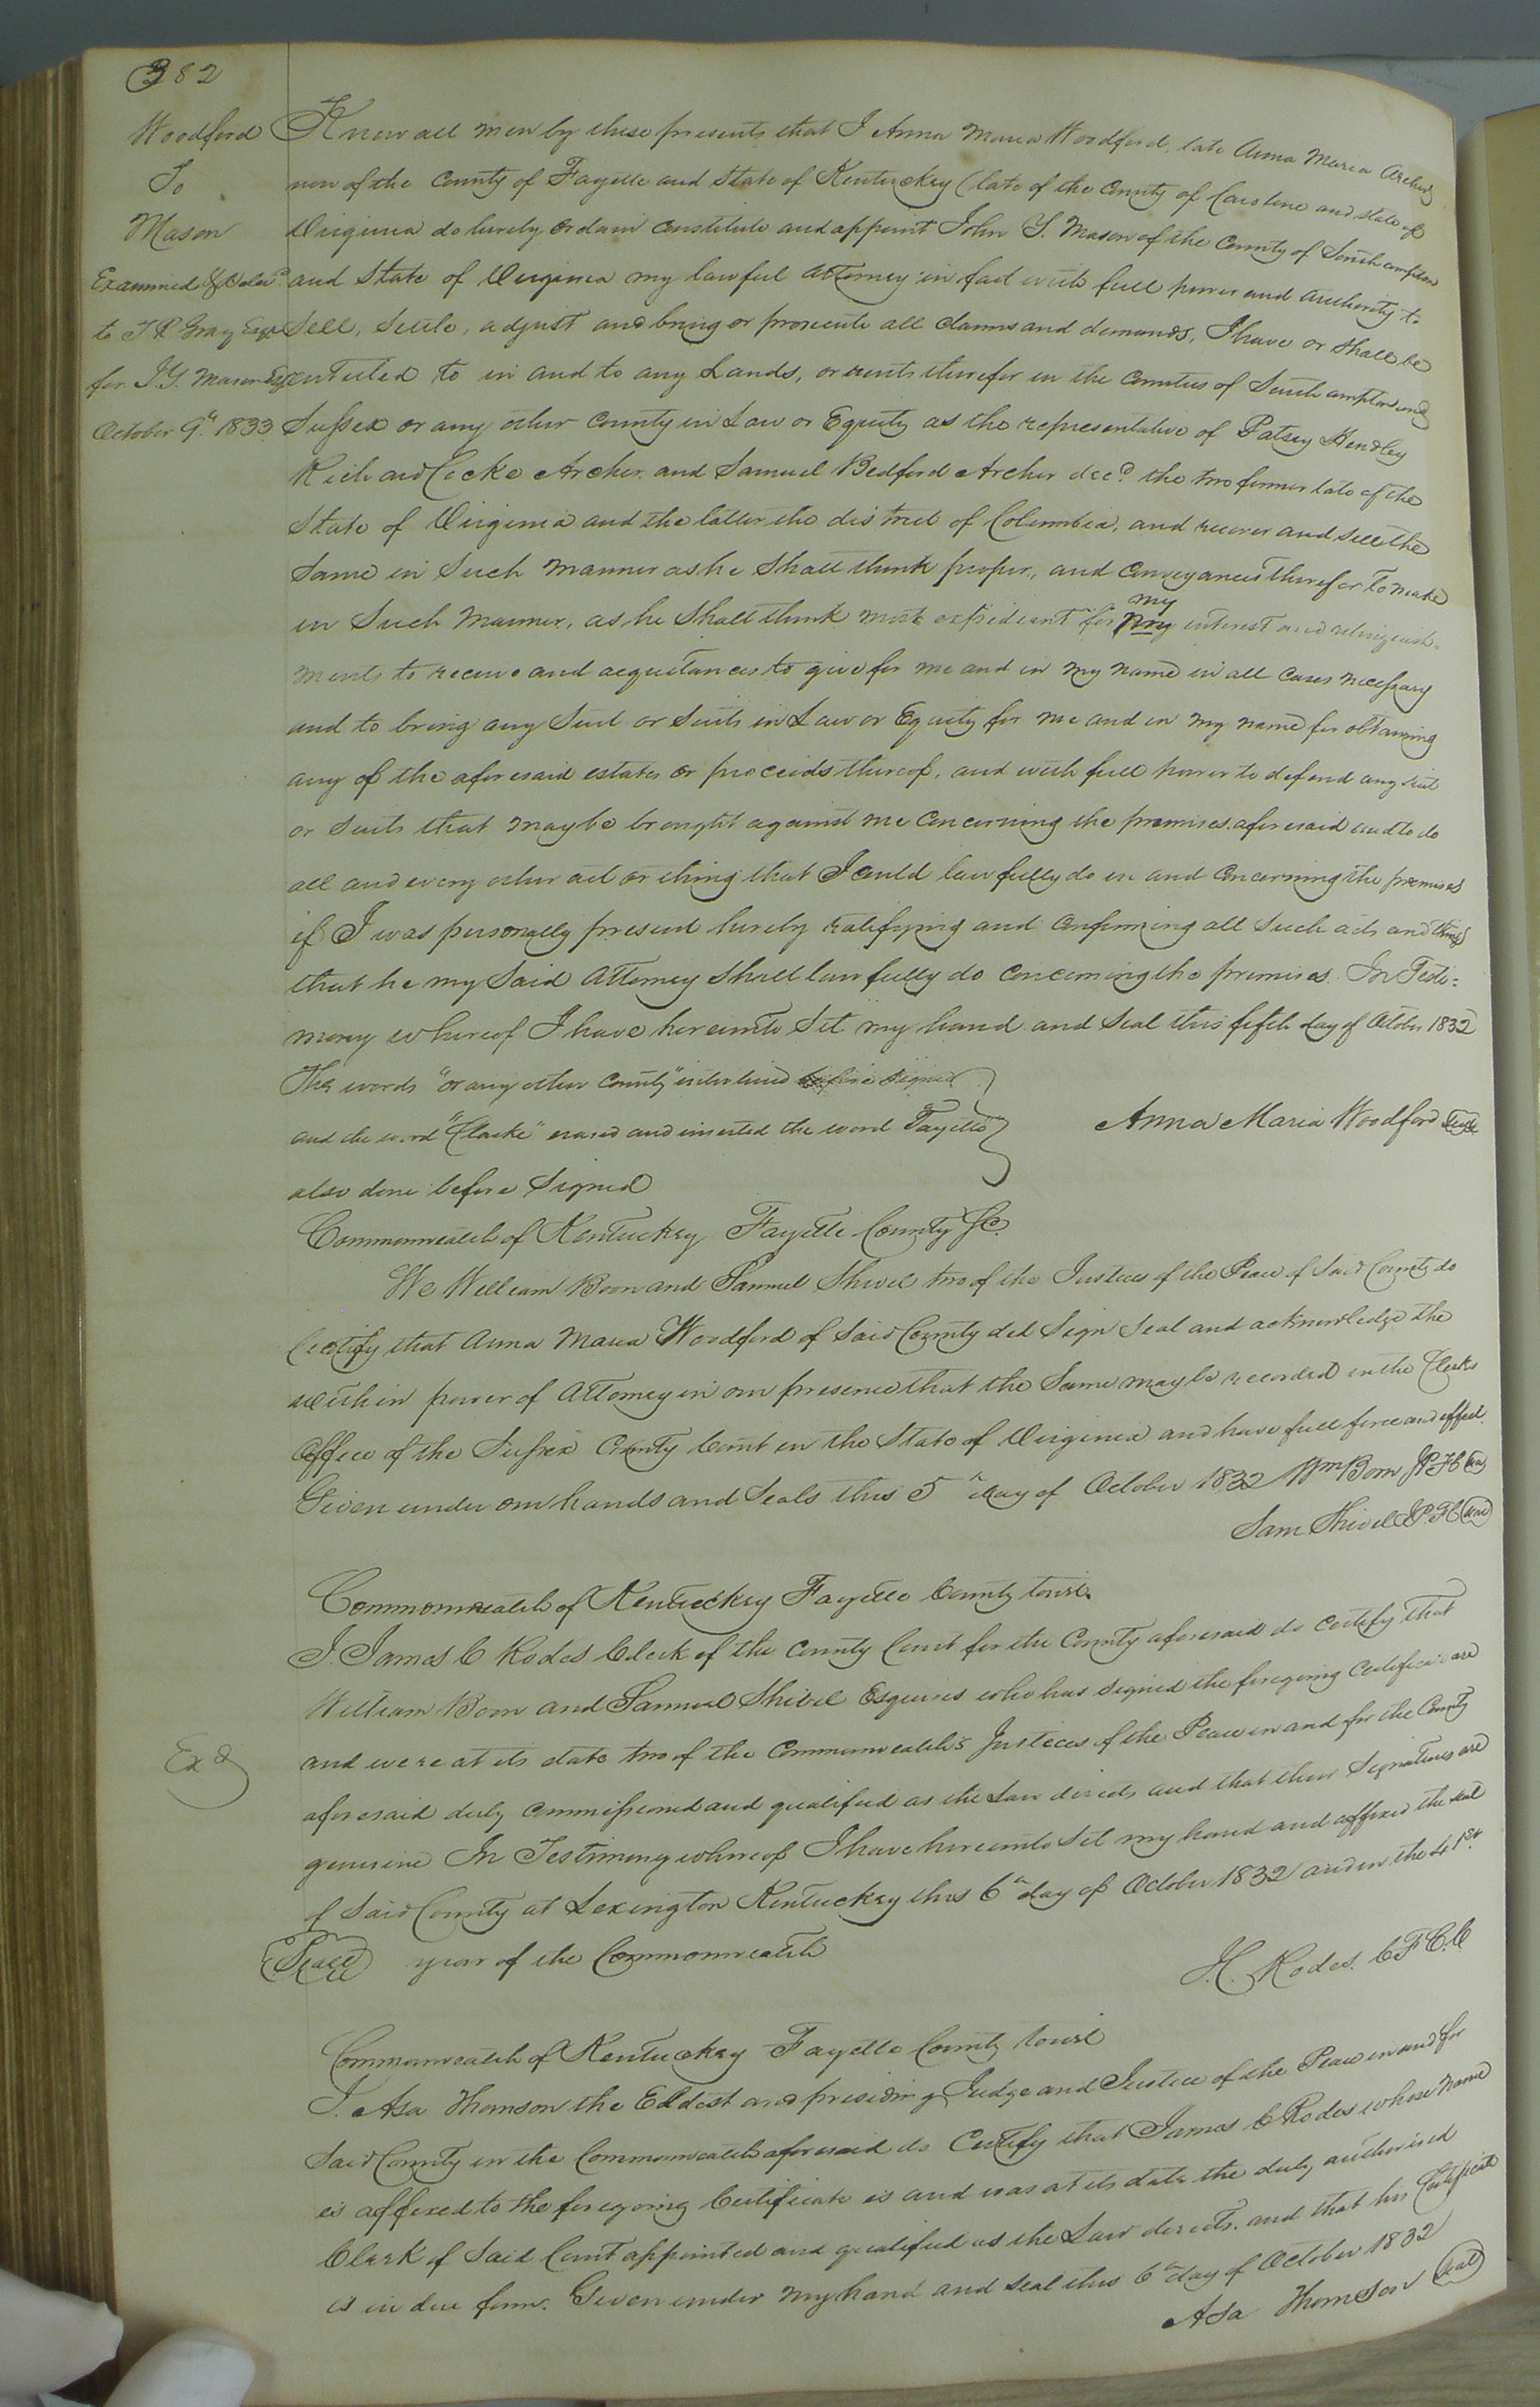 382
Woodford
To
Mason
Examined & Deliv.d
to T R Gray Esqr
for J. Y. Mason Esqr
October 9th 1833
Know all men by these presents that I Anna Maria Woodford, late Anna Maria Archer
now of the County of Fayette and State of Kentuckey (late of the County of Caroline and State of
Virginia do hereby ordain constitute and appoint John Y. Mason of the County of Southampton
and State of Virginia my lawful Attorney in fact with full power and authority to
Sell, Settle, adjust and bring or prosecute all claims and demands, I have or shall be
entitled to in and to any Lands, or rents therefor in the Counties of Southampton and
Sussex or any other County in Law or Equity as the representative of Patsey Hendley
Richard Cocke Archer and Samuel Bedford Archer decd. the two former late of the
State of Virginia and the latter the district of Columbia, and recover and sell the
Same in Such manner as he Shall think proper, and Conveyances therefor to make
in Such Manner, as he Shall think most expedient for my interest and relinquish-
ments to receive and acquitances to give for me and in my name in all cases necessary
and to bring any Suit or Suits in Law or Equity for me and in my name for obtaining
any of the aforesaid estates or proceeds thereof, and with full power to defend any suit
or Suits that may be brought against me Concerning the premises aforesaid and to do
all and every other act or thing that I could lawfully do in and Concerning the premises
if I was personally present hereby ratifying and Confirming all Such acts and things
that he my Said Attorney Shall lawfully do Concerning the premises. In Testi-
mony whereof I have hereunto Set my hand and Seal this fifth day of October 1832
The words "or any other County" interlined before signed
and the word "Clarke" erased and inserted the word Fayette
also done before Signed
Anna Maria Woodford Seal
Commonwealth of Kentuckey Fayette County Sc.
We William Boon and Samuel Shivel two of the Justices of the Peace of Said County do
Certify that Anna Maria Woodford of Said County did Sign Seal and acknowledge the
within power of Attorney in our presence that the Same may be recorded in the Clerks
Office of the Sussex County Court in the State of Virginia and have full force and effect.
Given under our hands and Seals this 5th day of October 1832 Wm Boon JP FC Seal
Sam Shivel JP. FC Seal
Commonwealth of Kentuckey Fayette County Court
I. James C Rodes Clerk of the County Court for the County aforesaid do Certify that
William Boon and Samuel Shivel Esquires who has signed the foregoing Certificate are
and were at its date two of the Commonwealth's Justices of the Peace in and for the County
aforesaid duly Commissioned and qualified as the Law directs and that their Signatures are
genuine In Testimony whereof I have hereunto Set my hand and affixed the seal
of Said County at Lexington Kentuckey this 6th day of October 1832 and in the 41st
Seal year of the Commonwealth
Exd
J.C. Rodes. C F C. C
Commonwealth of Kentuckey Fayette County Court
I. Asa Thomson the Eldest and presiding Judge and Justice of the Peace in and for
Said County in the Commonwealth aforesaid do Certify that James C Rodes whose name
is affixed to the foregoing Certificate is and was at its date the duly authorised
Clerk of Said Court appointed and qualified as the Law directs. and that his Certificate
is in due form. Given under my hand and seal this 6th day of October 1832
Asa Thomson Seal